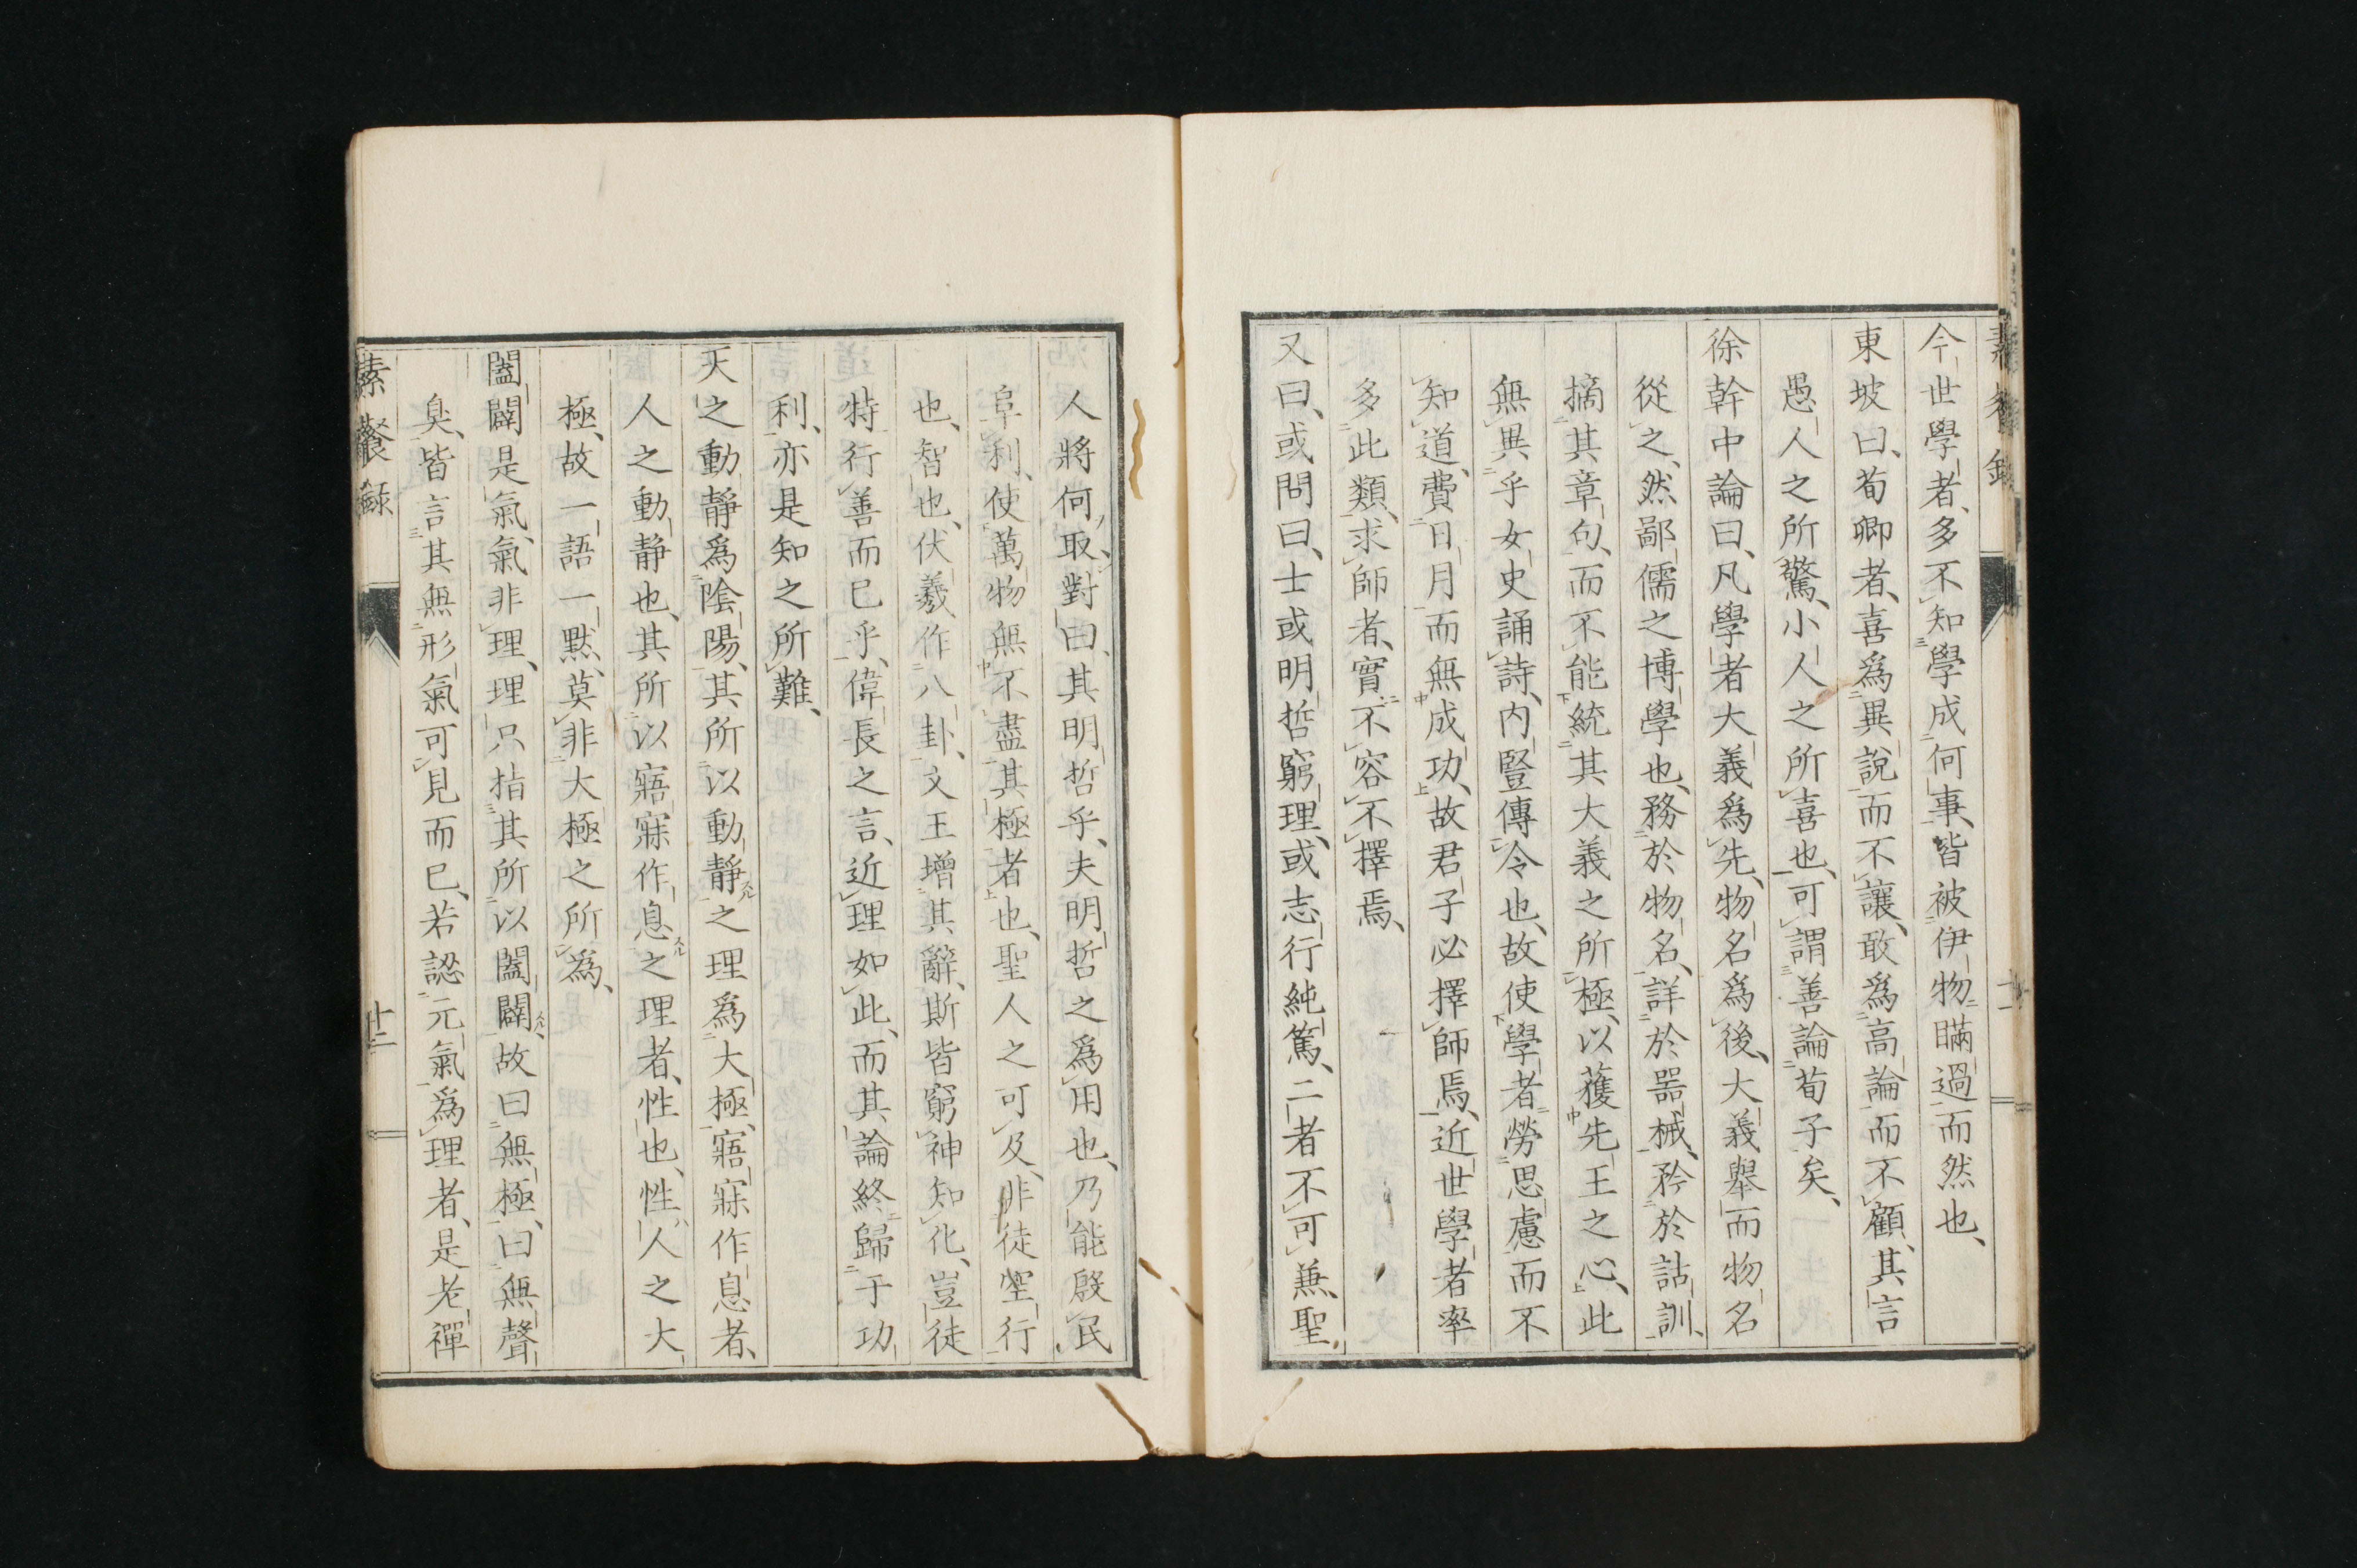 今世學者、多不知學成何事、皆被伊物瞞過而然也、
東坡曰、荀卿者、喜爲異說而不讓、敢爲高論而不顧、其言
愚人之所驚、小人之所喜也、可謂善論荀子矣、
徐幹中論曰、凡學者大義爲先、物名爲後、大義舉而物名
從之、然鄙儒之博學也、務於物名、詳於器械、矜於詁訓、
摘其章句、而不能統其大義之所極、以獲先王之心、此
無異乎女史誦詩、内豎傳令也、故使學者勞思慮而不
知道、費日月而無成功、故君子必擇師焉、近世學者率
多此類、求師者、實不容不擇焉、
又曰、或問曰、士或明哲窮理、或志行純篤、二者不可兼、聖
人將何取、對曰、其明哲乎、夫明哲之爲用也、乃能殷民
阜利、使萬物無不盡其極者也、聖人之可及、非徒空行
也、智也、伏羲作八卦、文王增其辭、斯皆窮神知化、豈徒
特行善而已乎、偉長之言、近理如此、而其論終歸于功
利、亦是知之所難、
天之動靜爲陰陽、其所以動靜スル之理爲大極、寤寐作息者、
人之動靜也、其所以寤寐作息スル之理者、性也、性、人之大
極、故一語一默、莫非大極之所爲、
闔闢是氣、氣非理、理只指其所以闔闢スル、故曰無極、曰無聲
臭、皆言其無形氣可見而已、若認元氣爲理者、是老禪
素餐錄
十二